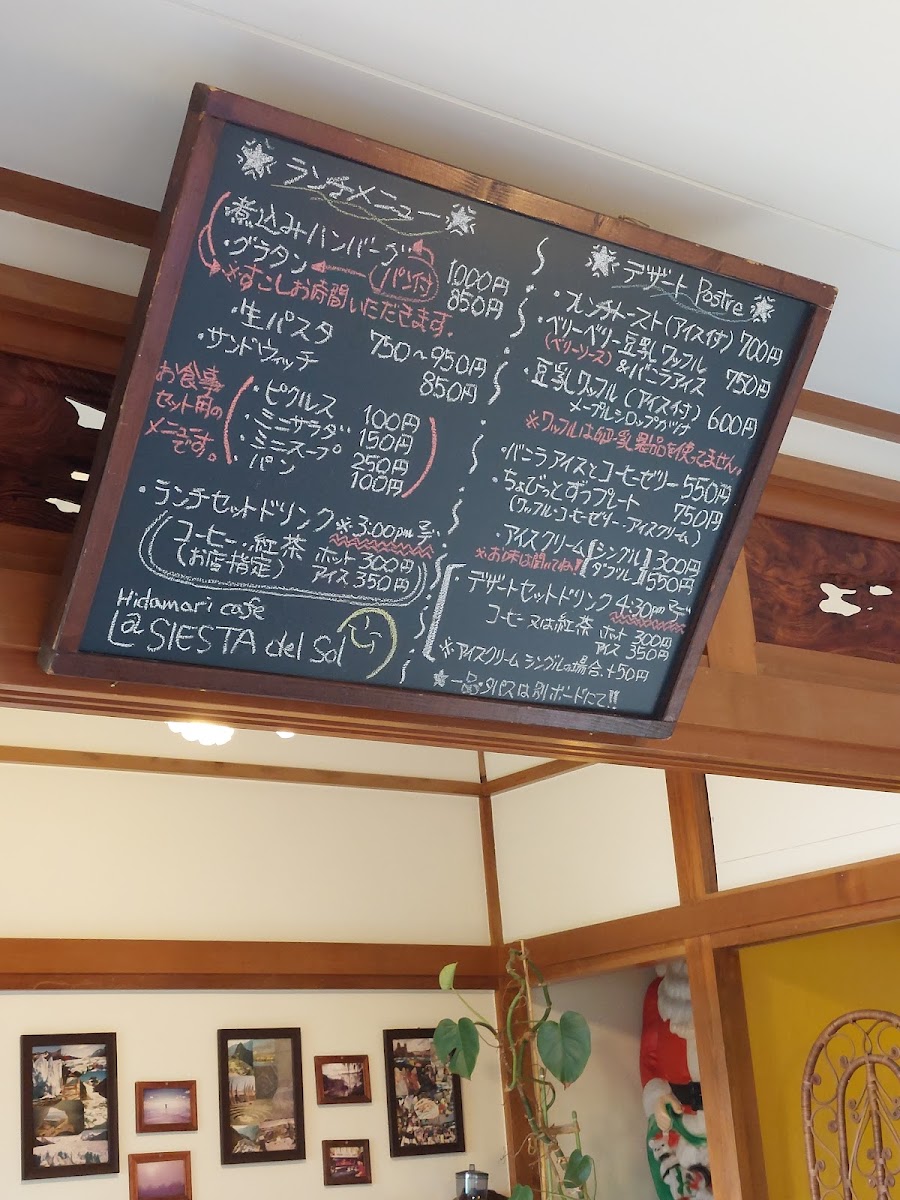 ランチメニュー
・煮込みハンバーグ 1000円
・グラタン パン付 850円
※すこしお時間いただきます。
・生パスタ 750〜950円
・サンドウィッチ 850円
お食事
セット用の
メニュー
です。
・ピクルス 100円
・ミニサラダ 150円
・ミニスープ 250円
パン 100円
・ランチセットドリンク ※3:00pm まで
コーヒー・紅茶 ホット 300円
(お店指定) アイス 350円
Hidamari cafe
@SIESTA del Sol
デザート Postre
・フレンチトースト(アイス付) 700円
・ベリーベリー豆乳ワッフル
(ベリーソース) &バニラアイス 750円
・豆乳ワッフル(アイス付) 600円
メープルシロップがけ
※ワッフルは卵・乳製品を使ってません。
・バニラアイスとコーヒーゼリー 550円
・ちょびっとずつプレート 750円
(ワッフル・コーヒーゼリー・アイスクリーム)
・アイスクリーム [シングル] 300円
※お味は聞いてね!! [ダブル] 550円
・デザートセットドリンク 4:30pmまで
コーヒー又は紅茶 ホット 300円
アイス 350円
※アイスクリームシングルの場合、+50円
一品・タパスは別ボードにて!!